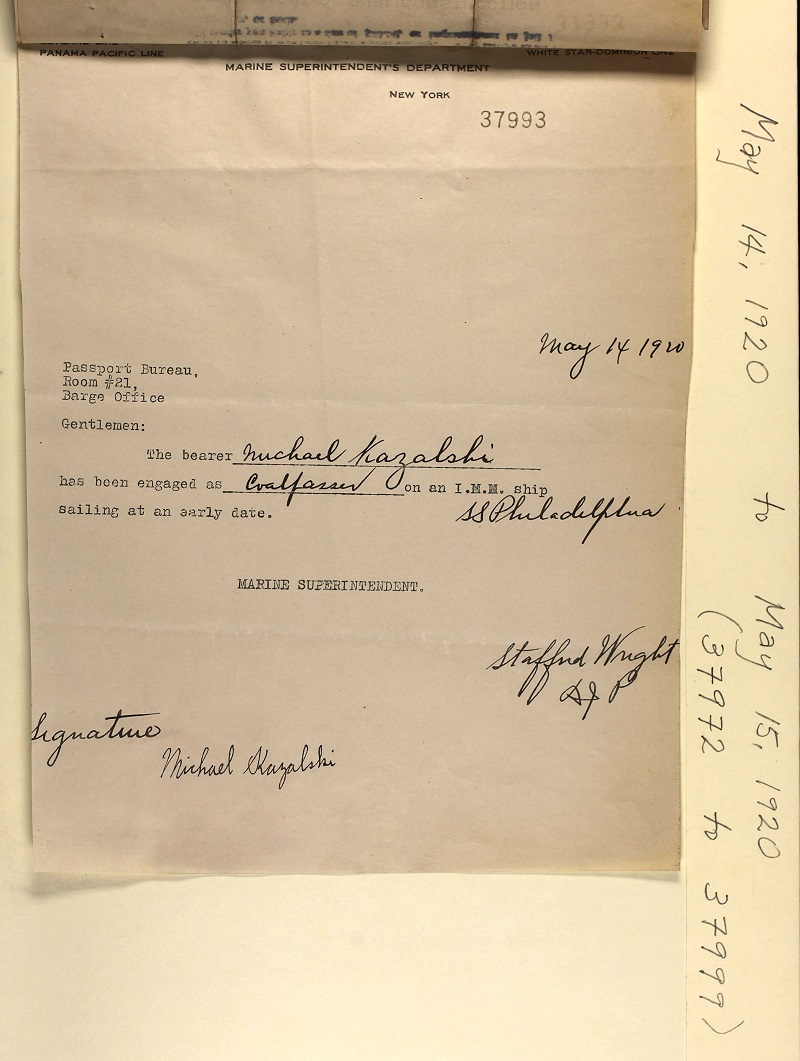 PANAMA PACIFIC LINE
WHITE STAR-DOMINION LINE
MARINE SUPERINTENDENT'S DEPARTMENT
NEW YORK
37993
May 14 1920
Passport Bureau,
Room #21,
Barge Office
Gentlemen:
The bearer Michael Kazalski
has been engaged as Coalpasser on an I.M.M. ship
sailing at an early date. SS Philadelphia
MARINE SUPERINTENDENT.
Stafford Wright
Signature
Michael Kazalski
May 14, 1920 to May 15, 1920
(37972 to 37999)